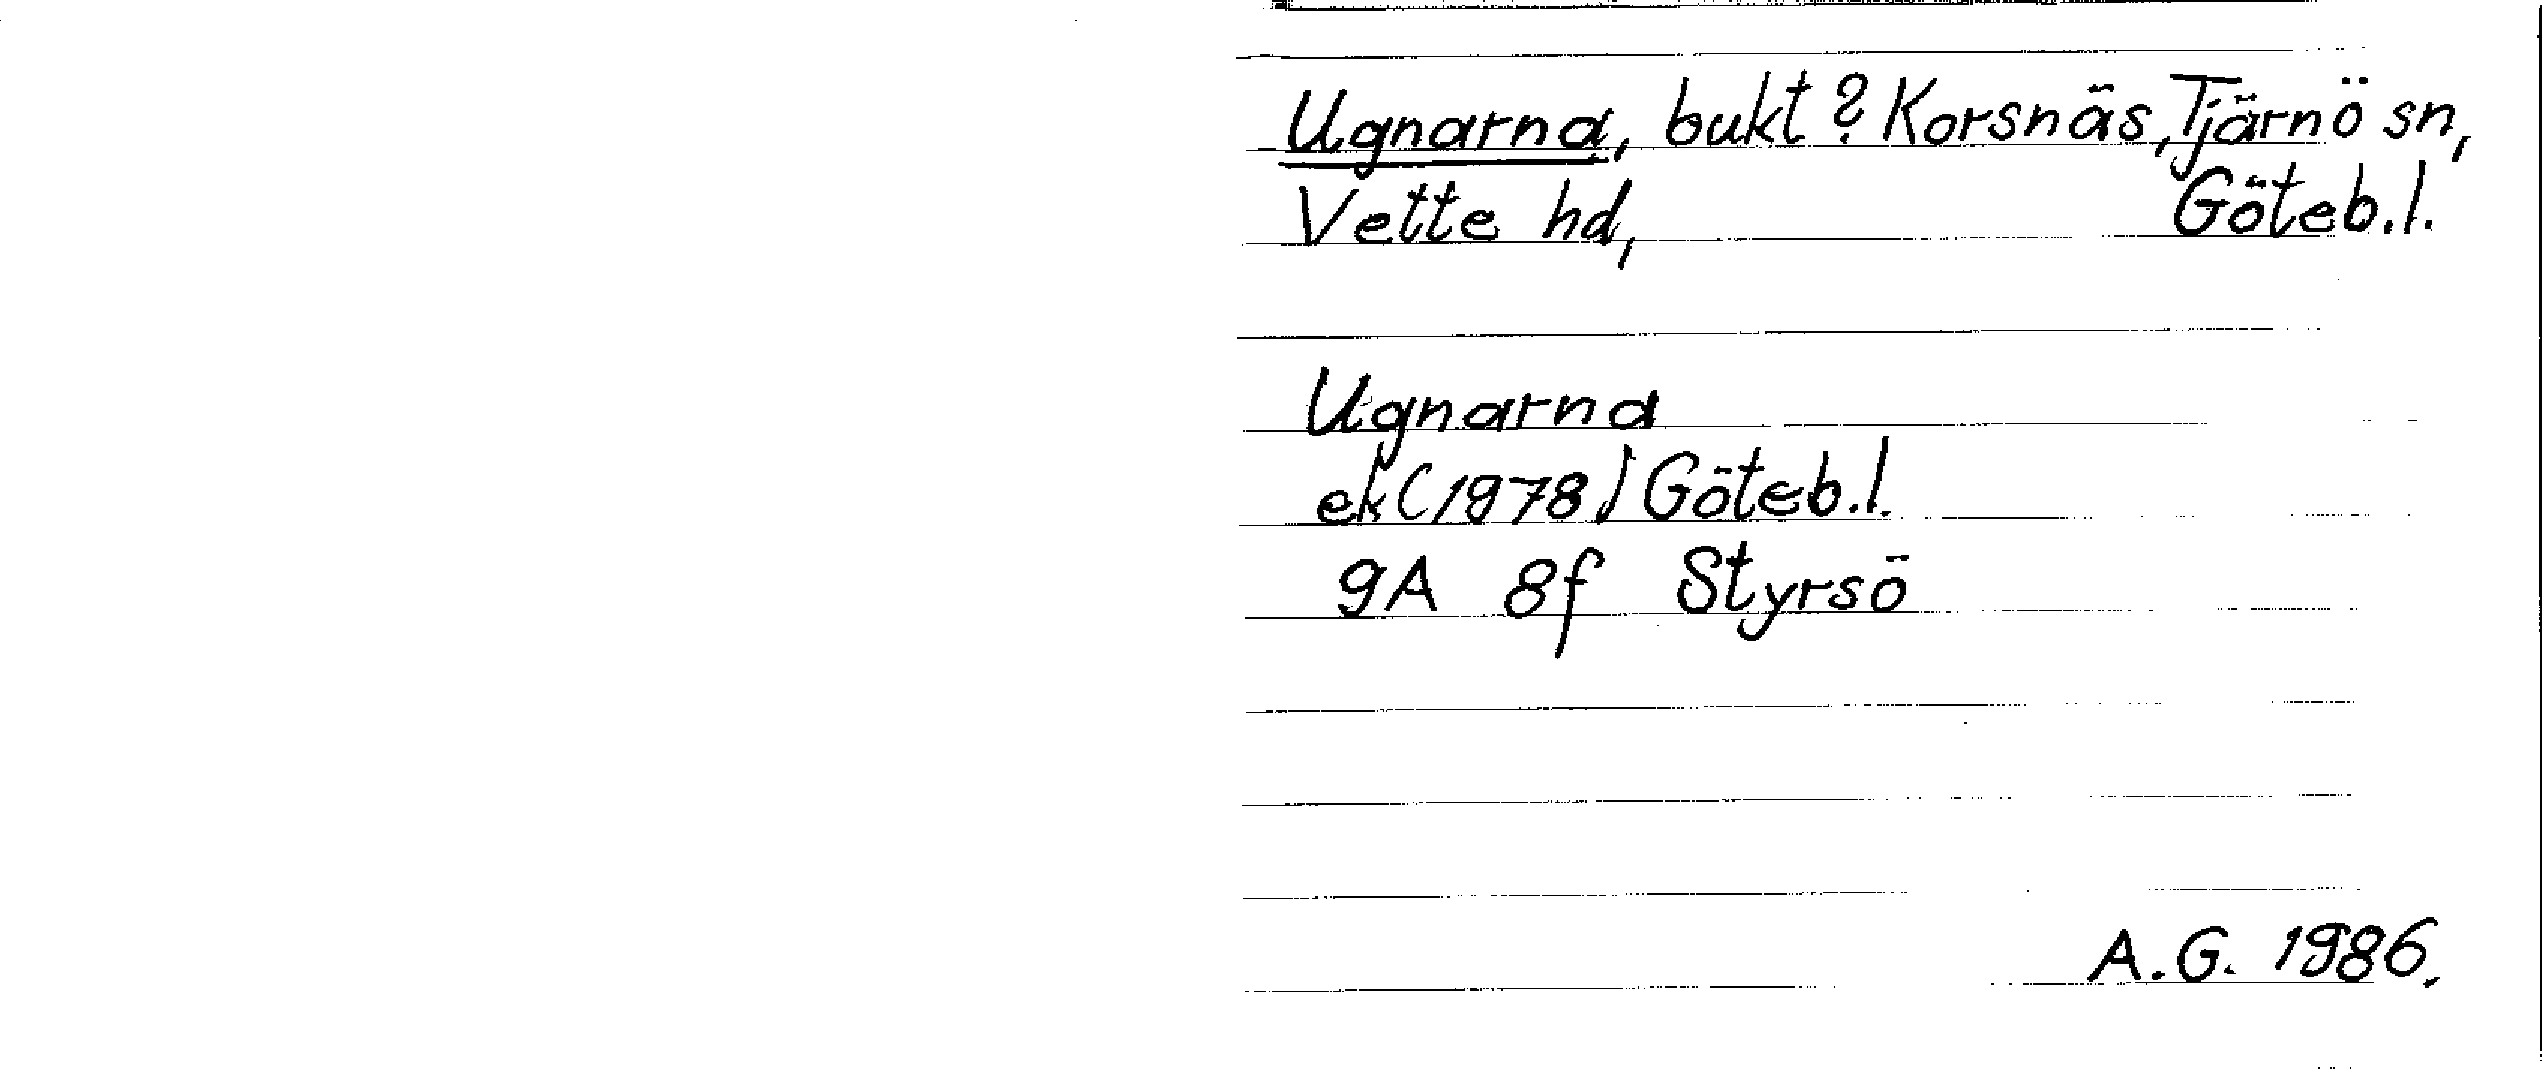 Ugnarna, bukt? Korsnäs, Tjärnö sn,
Vette hd, Göteb.l.
Ugnarna
ek (1978) Göteb.l.
9A 8f Styrsö
A.G. 1986.